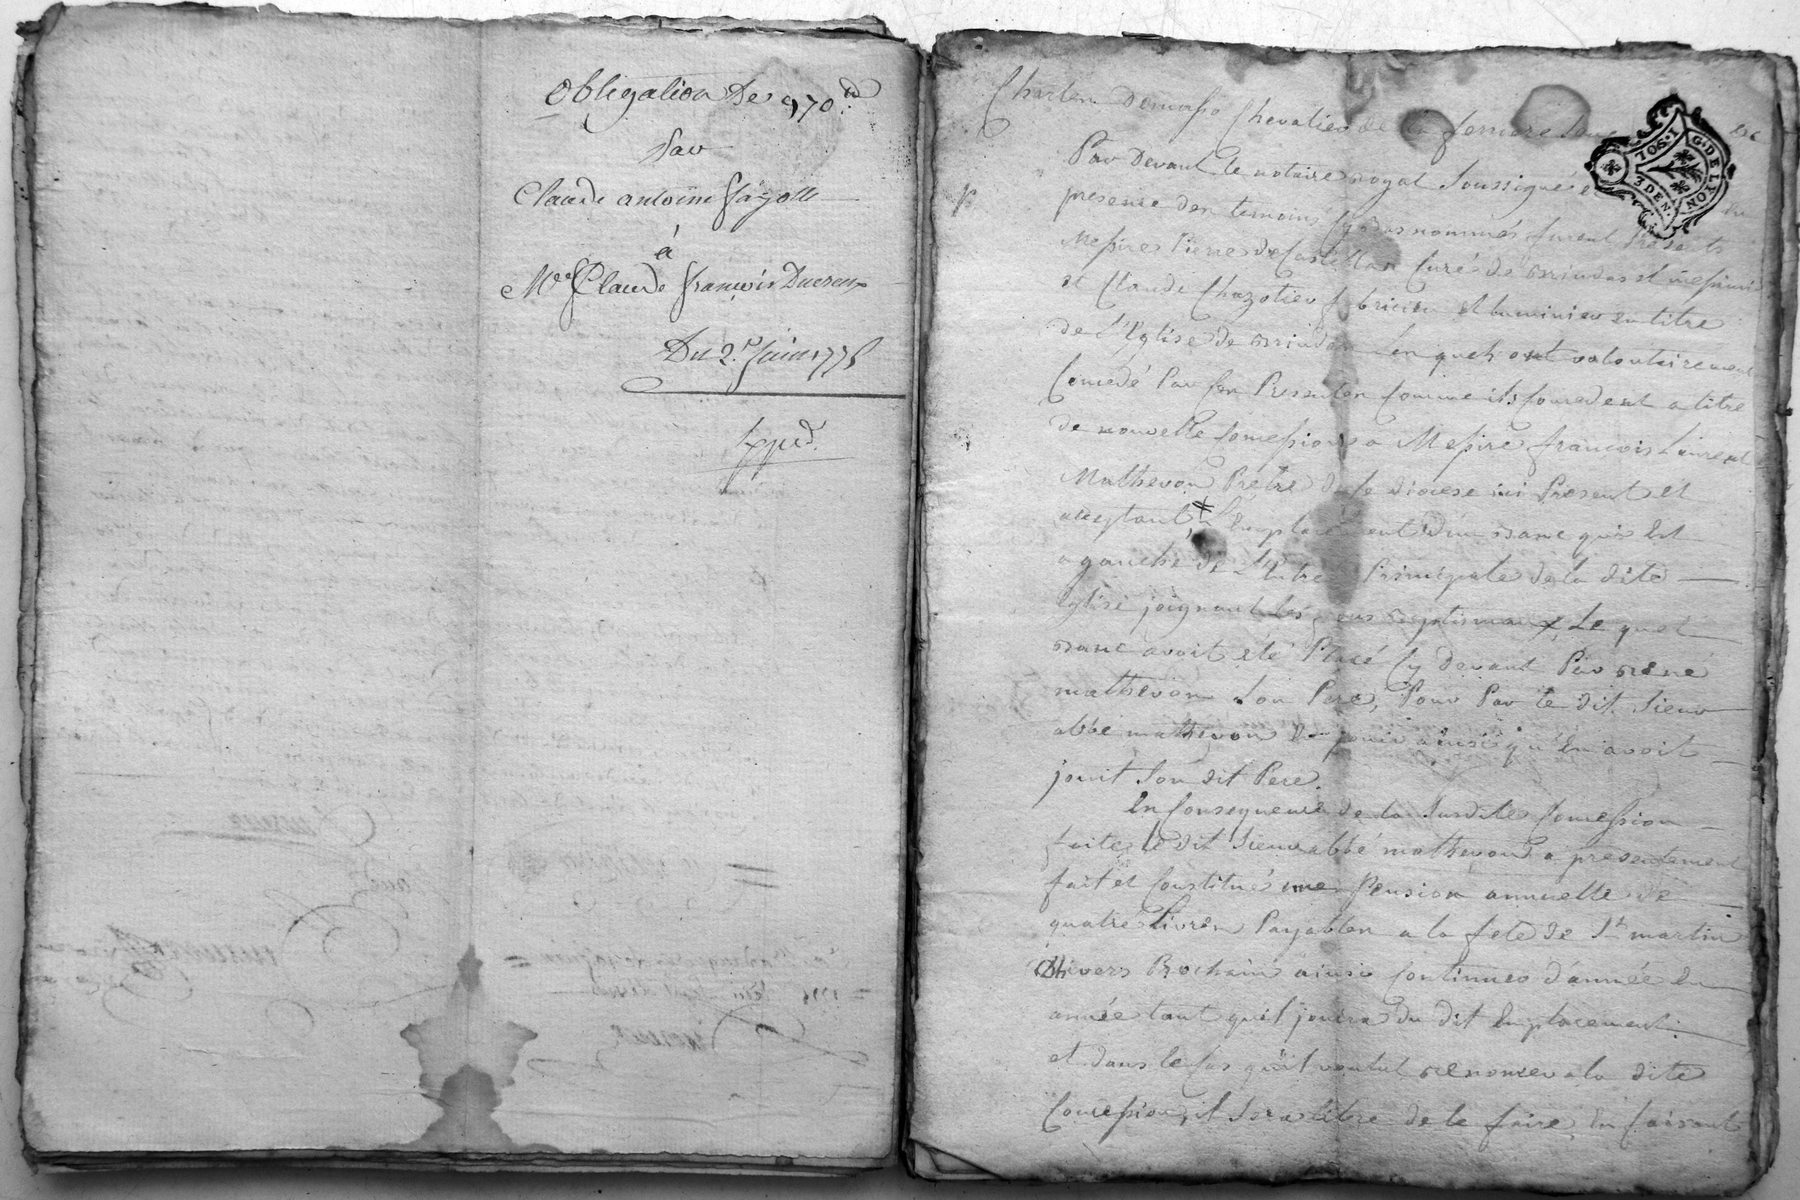 Obligation De 970 ₶
Par
Claude antoine fayolle
à
Me Claude françois Ducreux
Du 2e Juin 1775
Exped.
Charles demasso Chevalier de la ferriere
Par Devant le notaire royal Soussigné et
presence des temoins cy bas nommés furent Presents
Messire Pierre de Castellas Curé de
et Claude Chazotier fabricien et luminier en titre
de l'Eglise de Lesquels ont volontairement
Concedé Par ces Presentes comme ils concedent a titre
de nouvelle Concession a Messire françois Laurent
Mathevon Prêtre de ce diocese ici Present et
acceptant L'Emplacement d'un banc qui est
a gauche de L'Entrée Principale de la dite
Eglise joignant les fons Baptismaux, Le quel
banc avoit eté Placé cy devant Par René
mathevon Son Pere, Pour Par le dit Sieur
abbé mathevon En jouir ainsi qu'En avoit
jouit Son dit Pere.
En Consequence de la Susdite Concession
faite, le dit Sieur abbé mathevon a presentement
fait et Constitué une Pension annuelle de
quatre livres Payables a la fete de St martin
d'hivers Prochain ainsi Continuer d'année En
année tant qu'il jouira du dit Emplacement
et dans le Cas qu'il voulut renoncer a la dite
Concession, il Sera libre de le faire, En faisant
G. DE LYON
1. SOL. 3 DEN.